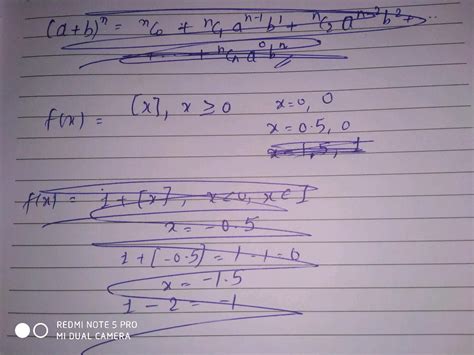 (a+b)ⁿ = ⁿC₀ + ⁿC₁ aⁿ⁻¹ b¹ + ⁿC₂ aⁿ⁻² b² + ..
.... + ⁿCₙ a⁰ bⁿ
f(x) = [x], x ≥ 0
x=0, 0
x=0.5, 0
x=1.5, 1
f(x) = 1+[x], x<0, x∈I
x = -0.5
1+[-0.5] = 1-1=0
x = -1.5
1 - 2 = -1
REDMI NOTE 5 PRO
MI DUAL CAMERA